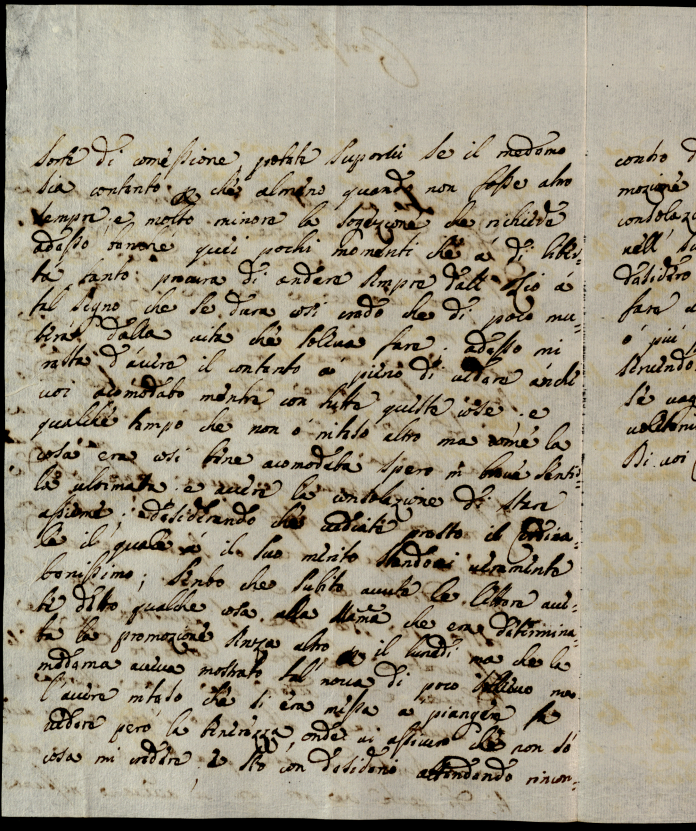 sorte di comessione, potete suporlui se il medemo
sia contento che almeno quando non fosse altro
sempre e molto minore la sogezione che richiede
adesso quei pochi momenti che à di liber-
tà tanto procura di andare sempre dall' à
tal segno che se dura cosi credo che di poco mu-
terà dalla vita che soleva fare. adesso mi
resta d'avere il contento à pieno di vedere anche
voi acomodato mentre con tutte queste cose. e
qualche tempo che non ò inteso altro ma come la
cosa era cosi bene acomodata spero in breve senti-
la ultimata e avere la consolazione di stare
assieme. desiderando che vediate presto il Cardina-
le il quale à il suo merito veramente
bonissimo; sento che subito avute le lettere ave-
te detto qualche cosa alla Mamà che era determina-
ta la promozione senza altro il lunedi ma che la
medema aveva mostrato tal nova di poco
l'avere inteso che si era messa a piangere fa
vedere però la tenerezza, onde vi assicuro che non sò
cosa mi credere e stò con desiderio attendendo rincon-
contro d
mozione
condolazi
nell' su
desidero
fare
ò più
servendo
sè
Di voi